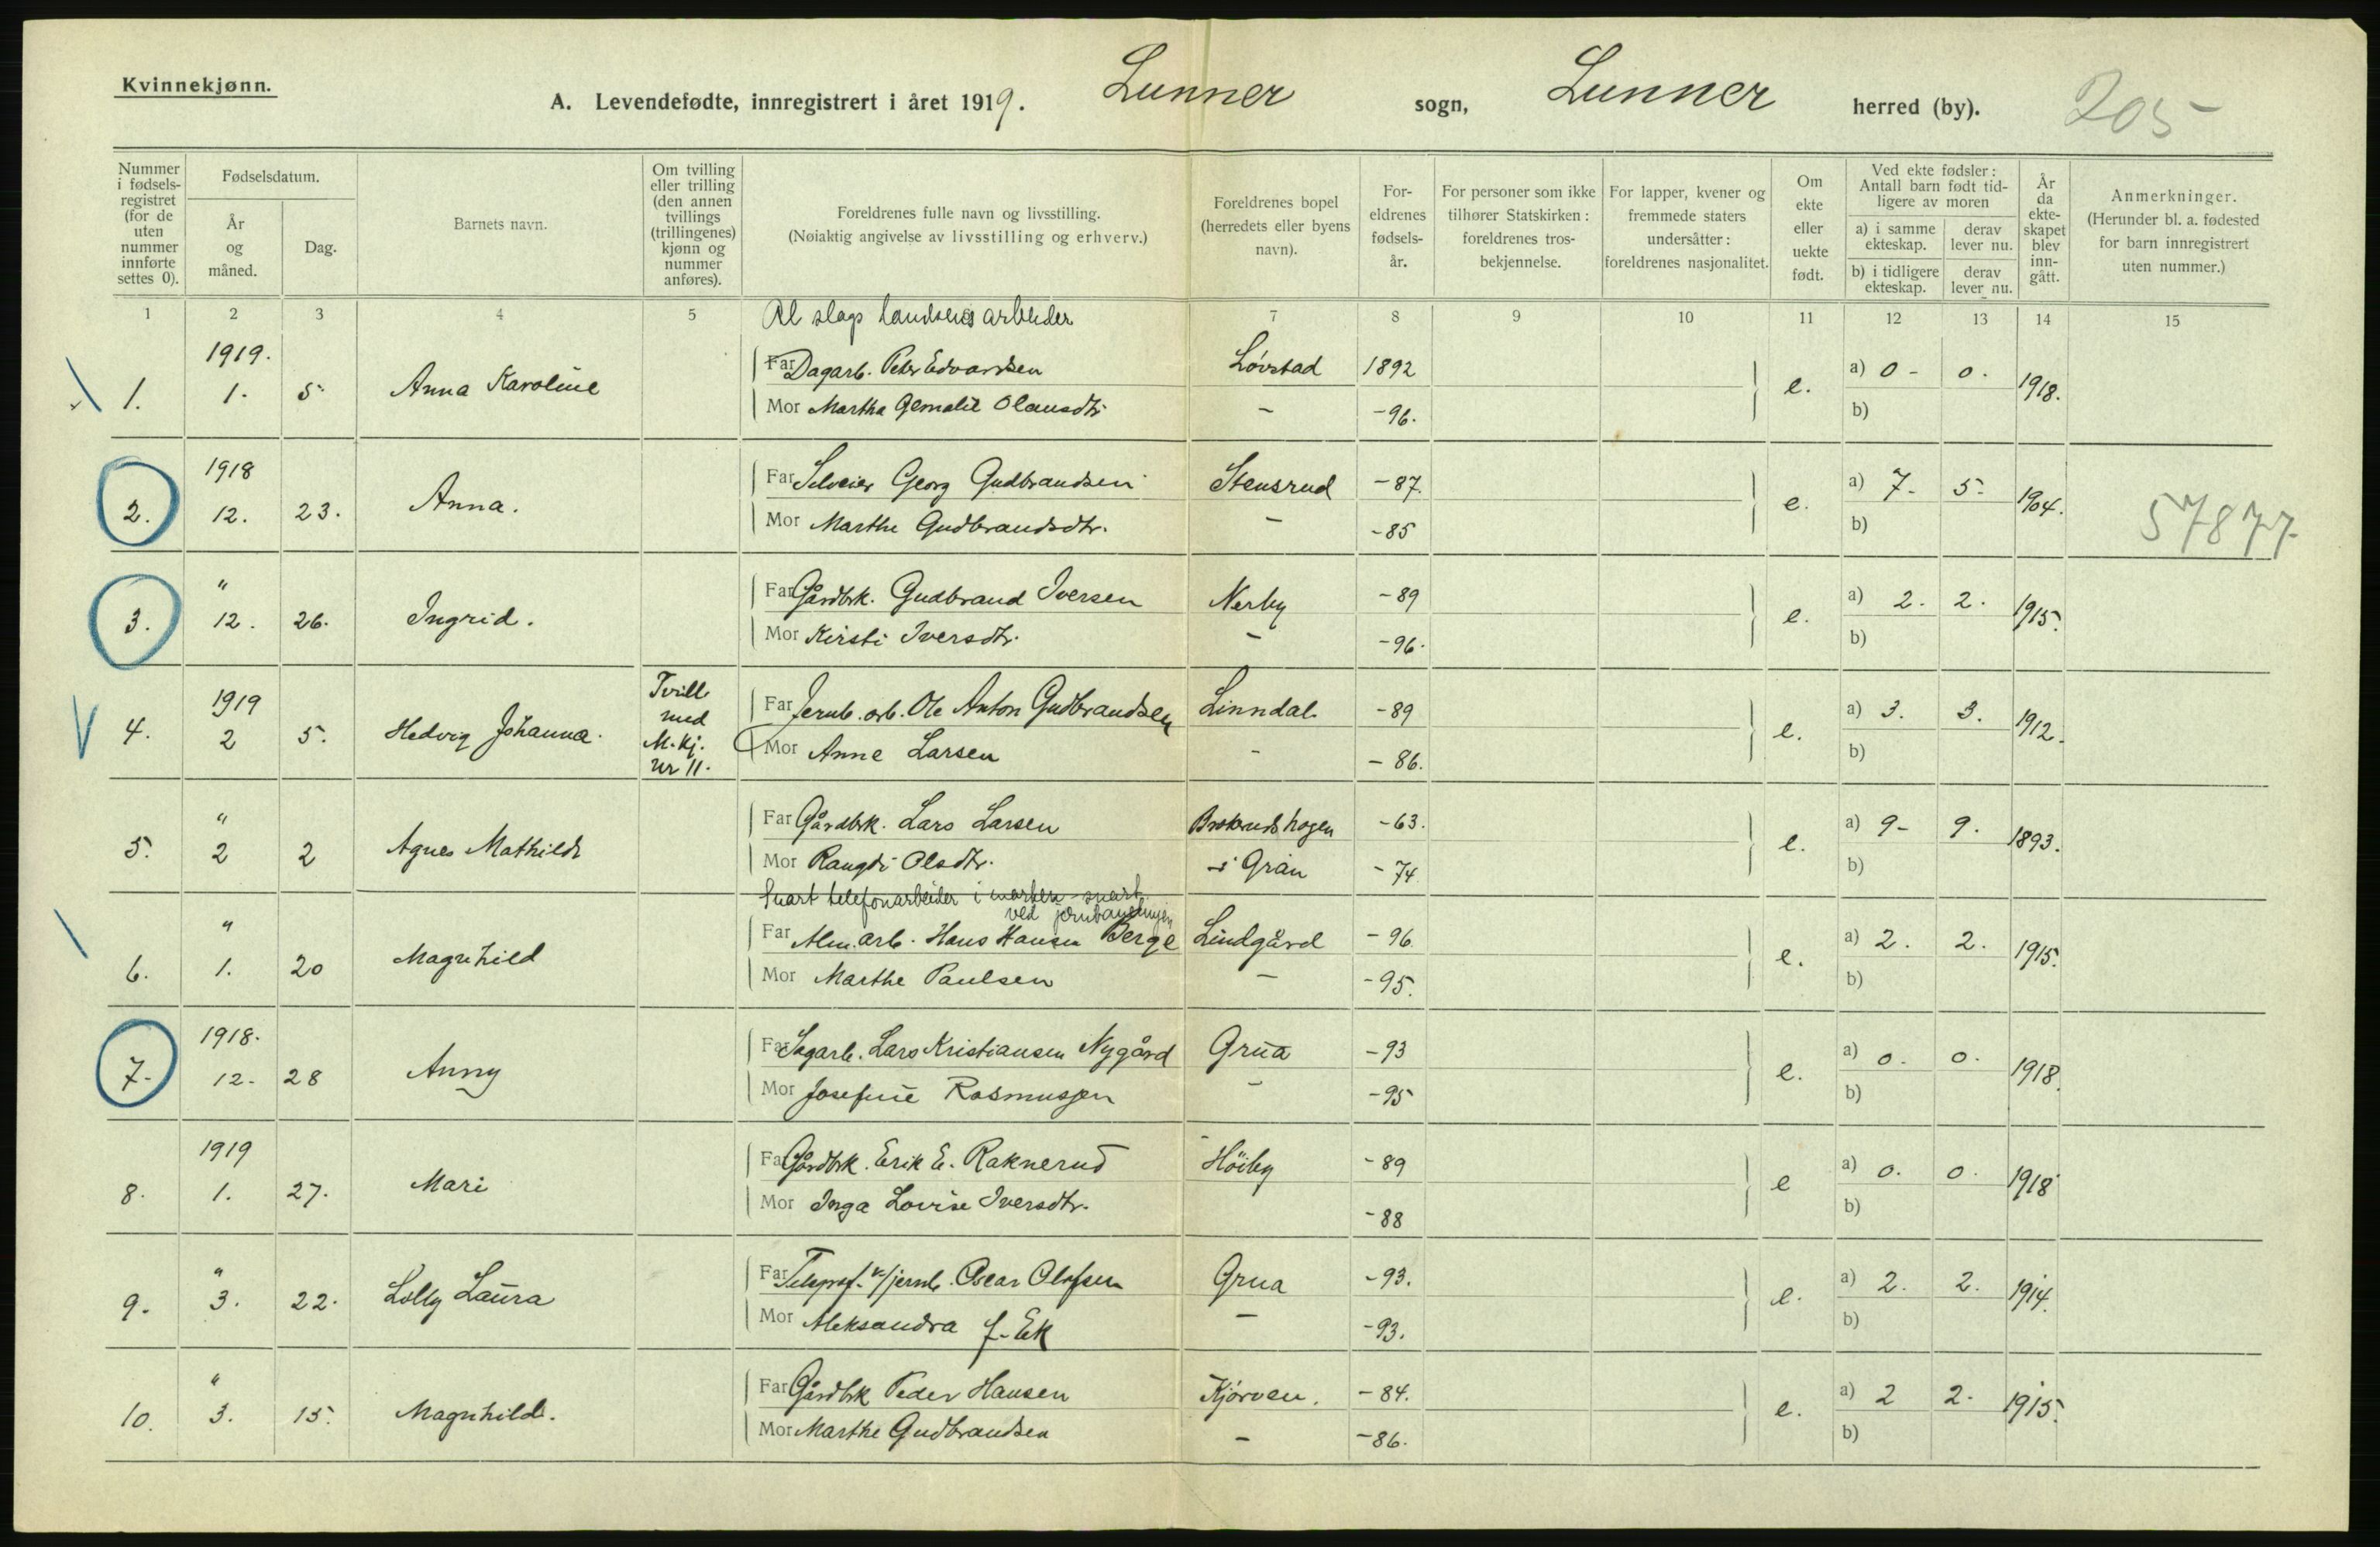 Kvinnekjønn.
A. Levendefødte, innregistrert i året 1919. Lunner sogn, Lunner herred (by). 205
Nummer i fødsels-registret (for de uten nummer innførte settes 0).
Fødselsdatum.
År og måned.
Dag.
Barnets navn.
Om tvilling eller trilling (den annen tvillings (trillingenes) kjønn og nummer anføres).
Foreldrenes fulle navn og livsstilling.
(Nøiaktig angivelse av livsstilling og erhverv.)
Foreldrenes bopel (herredets eller byens navn).
For-eldrenes fødsels-år.
For personer som ikke tilhører Statskirken: foreldrenes tros-bekjennelse.
For lapper, kvener og fremmede staters undersåtter: foreldrenes nasjonalitet.
Om ekte eller uekte født.
Ved ekte fødsler: Antall barn født tid-ligere av moren
a) i samme ekteskap. derav lever nu.
b) i tidligere ekteskap. derav lever nu.
År da ekte-skapet blev inn-gått.
Anmerkninger.
(Herunder bl. a. fødested for barn innregistrert uten nummer.)
1 2 3 4 5 7 8 9 10 11 12 13 14 15
Al slags landsens arbeider
1919.
1. 1. 5. Anna Karoline
Far Dagarb. Peter Edvardsen Løvstad 1892 e. a) 0 - 0. 1918.
Mor Martha Olausdtr. - -96. b)
1918
2. 12. 23. Anna.
Far Georg Gudbrandsen Stensrud -87. e. a) 7. 5. 1904. 57877
Mor Marthe Gudbrandsdtr. - -85 b)
"
3. 12. 26. Ingrid.
Far Gårdbrk. Gudbrand Iversen Nerby -89 e. a) 2. 2. 1915.
Mor Kirsti Iversdtr. - -96. b)
1919
4. 2 5. Hedvig Johanna. Tvill. med M.kj. nr 11.
Far Jernb. arb. Ole Anton Gudbrandsen Linndal -89 e. a) 3. 3. 1912.
Mor Anne Larsen - -86. b)
"
5. 2 2 Agnes Mathilde
Far Gårdbrk. Lars Larsen -63. e. a) 9- 9. 1893.
Mor Rangdi Olsdtr. i Gran -74 b)
Snart telefonarbeider i marken snart
ved jernbanelinjen
"
6. 1. 20 Magnhild
Far Alm. arb. Hans Hansen Berge Lindgård -96. e. a) 2. 2. 1915.
Mor Marthe Paulsen - -95. b)
1918.
7. 12. 28 Anny
Far Sagarb. Lars Kristiansen Nygård Grua -93 e. a) 0. 0. 1918.
Mor Josefine Rasmussen - -95 b)
1919
8. 1. 27. Mari
Far Gårdbrk. Erik E. Raknerud Höiby -89 e a) 0. 0. 1918
Mor Inga Lovise Iversdtr. -88 b)
"
9. 3. 22. Lolly Laura
Far Telegraf. v/jernb. Oscar Olafsen Grua -93. e. a) 2. 2. 1914.
Mor Aleksandra f. Ek - -93. b)
"
10. 3. 15. Magnhild.
Far Gårdbrk Peder Hansen Kjørven. -84. e. a) 2 2. 1915.
Mor Marthe Gudbrandsen - -86. b)